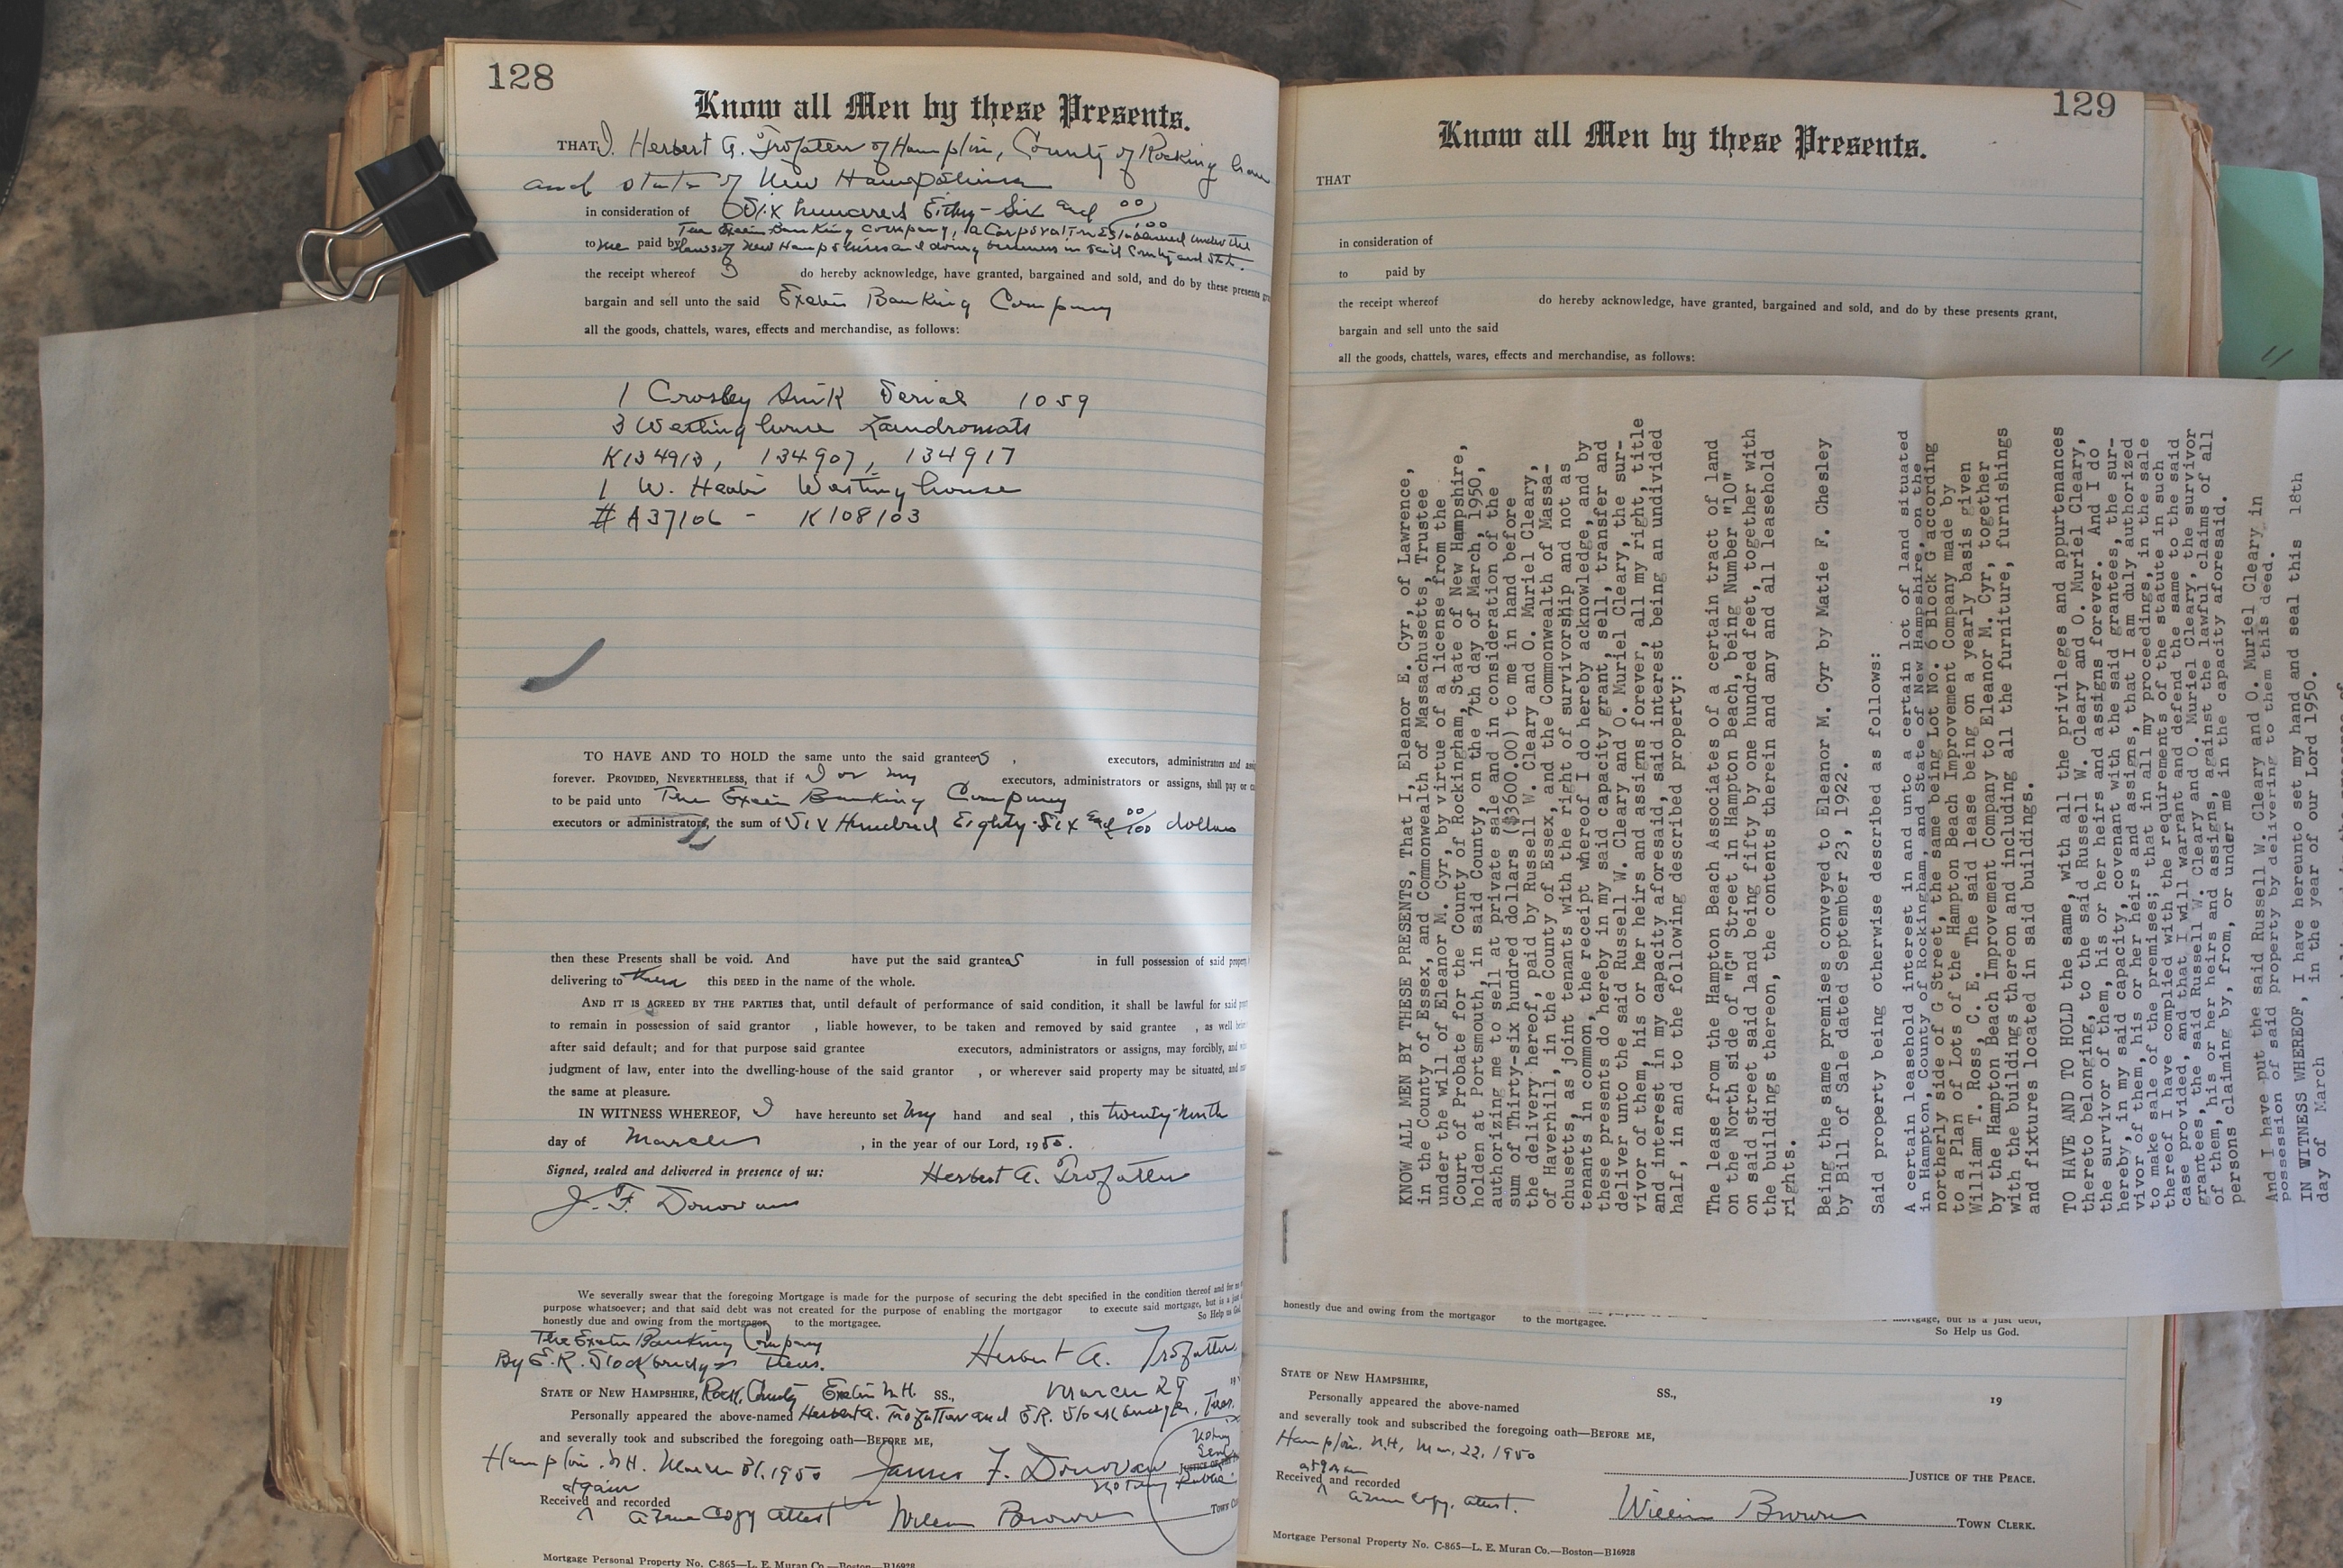 128
Know all Men by these Presents.
THAT I, Herbert A. Trofatter of Hampton, County of Rockingham
and state of New Hampshire
in consideration of Six hundred Eithy-Six and 00/100
The Exeter Banking Company, a Corporation Established under the
to me paid by laws of New Hampshire and doing business in said County and State.
the receipt whereof I do hereby acknowledge, have granted, bargained and sold, and do by these presents
bargain and sell unto the said Exeter Banking Company
all the goods, chattels, wares, effects and merchandise, as follows:
1 Crosley Sink Serial 1059
3 Westinghouse Laundromats
K134913, 134907, 134917
1 W. Heater Westinghouse
# A37106 - K108103
TO HAVE AND TO HOLD the same unto the said grantees , executors, administrators and
forever. PROVIDED, NEVERTHELESS, that if I or my executors, administrators or assigns, shall pay or
to be paid unto The Exeter Banking Company
executors or administrators, the sum of Six Hundred Eighty-Six and 00/100 dollars
then these Presents shall be void. And have put the said grantees in full possession of said
delivering to them this DEED in the name of the whole.
AND IT IS AGREED BY THE PARTIES that, until default of performance of said condition, it shall be lawful for said
to remain in possession of said grantor , liable however, to be taken and removed by said grantee , as well
after said default; and for that purpose said grantee executors, administrators or assigns, may forcibly, and
judgment of law, enter into the dwelling-house of the said grantor , or wherever said property may be situated, and
the same at pleasure.
IN WITNESS WHEREOF, I have hereunto set my hand and seal , this twenty-ninth
day of March , in the year of our Lord, 1950.
Signed, sealed and delivered in presence of us: Herbert A. Trofatter
J. F. Donovan
We severally swear that the foregoing Mortgage is made for the purpose of securing the debt specified in the condition thereof and for no
purpose whatsoever; and that said debt was not created for the purpose of enabling the mortgagor to execute said mortgage, but is a just
honestly due and owing from the mortgagor to the mortgagee. So Help us God.
The Exeter Banking Company
By E. R. Stockbridge Treas. Herbert A. Trofatter
STATE OF NEW HAMPSHIRE, Rock. County Exeter N.H. SS., March 29 19
Personally appeared the above-named Herbert A. Trofatter and E.R. Stockbridge, Treas.
and severally took and subscribed the foregoing oath—BEFORE ME,
Notary Seal
Hampton, N.H. March 31, 1950 James F. Donovan JUSTICE OF
Notary Public
at 9 a m
Received and recorded
a true copy attest William Brown TOWN
Mortgage Personal Property No. C-865—L. E. Muran Co.—Boston—B16928
129
Know all Men by these Presents.
THAT
in consideration of
to paid by
the receipt whereof do hereby acknowledge, have granted, bargained and sold, and do by these presents grant,
bargain and sell unto the said
all the goods, chattels, wares, effects and merchandise, as follows:
KNOW ALL MEN BY THESE PRESENTS, That I, Eleanor E. Cyr, of Lawrence,
in the County of Essex, and Commonwealth of Massachusetts, Trustee
under the will of Eleanor M. Cyr, by virtue of a license from the
Court of Probate for the County of Rockingham, State of New Hampshire,
holden at Portsmouth, in said County, on the 7th day of March, 1950,
authorizing me to sell at private sale and in consideration of the
sum of Thirty-six hundred dollars ($3600.00) to me in hand before
the delivery hereof, paid by Russell W. Cleary and O. Muriel Cleary,
of Haverhill, in the County of Essex, and the Commonwealth of Massa-
chusetts, as joint tenants with the right of survivorship and not as
tenants in common, the receipt whereof I do hereby acknowledge, and by
these presents do hereby in my said capacity grant, sell, transfer and
deliver unto the said Russell W. Cleary and O. Muriel Cleary, the sur-
vivor of them, his or her heirs and assigns forever, all my right, title
and interest in my capacity aforesaid, said interest being an undivided
half, in and to the following described property:
The lease from the Hampton Beach Associates of a certain tract of land
on the North side of "G" Street in Hampton Beach, being Number "10"
on said street said land being fifty by one hundred feet, together with
the buildings thereon, the contents therein and any and all leasehold
rights.
Being the same premises conveyed to Eleanor M. Cyr by Matie F. Chesley
by Bill of Sale dated September 23, 1922.
Said property being otherwise described as follows:
A certain leasehold interest in and unto a certain lot of land situated
in Hampton, County of Rockingham, and State of New Hampshire, on the
northerly side of G Street, the same being Lot No. 6 Block G according
to a Plan of Lots of the Hampton Beach Improvement Company made by
William T. Ross, C. E. The said lease being on a yearly basis given
by the Hampton Beach Improvement Company to Eleanor M. Cyr, together
with the buildings thereon and including all the furniture, furnishings
and fixtures located in said buildings.
TO HAVE AND TO HOLD the same, with all the privileges and appurtenances
thereto belonging, to the said Russell W. Cleary and O. Muriel Cleary,
the survivor of them, his or her heirs and assigns forever. And I do
hereby, in my said capacity, covenant with the said grantees, the sur-
vivor of them, his or her heirs and assigns, that I am duly authorized
to make sale of the premises; that in all my proceedings, in the sale
thereof I have complied with the requirements of the statute in such
case provided, and that I will warrant and defend the same to the said
grantees, the said Russell W. Cleary and O. Muriel Cleary, the survivor
of them, his or her heirs and assigns, against the lawful claims of all
persons claiming by, from, or under me in the capacity aforesaid.
And I have put the said Russell W. Cleary and O. Muriel Cleary in
possession of said property by delivering to them this deed.
IN WITNESS WHEREOF, I have hereunto set my hand and seal this 18th
day of March in the year of our Lord 1950.
honestly due and owing from the mortgagor to the mortgagee. mortgage, but is a just debt,
So Help us God.
STATE OF NEW HAMPSHIRE, SS., 19
Personally appeared the above-named
and severally took and subscribed the foregoing oath—BEFORE ME,
Hampton, N.H., Mar. 22, 1950
JUSTICE OF THE PEACE.
at 9 a m
Received and recorded
a true copy, attest. William Brown TOWN CLERK.
Mortgage Personal Property No. C-865—L. E. Muran Co.—Boston—B16928